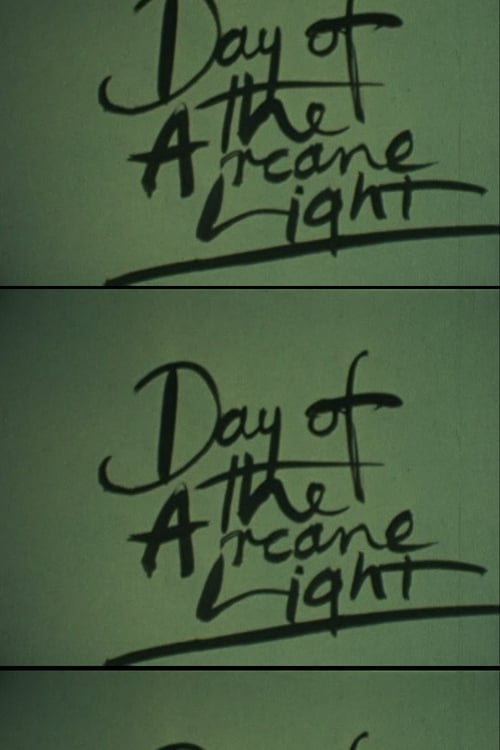 Day of
the
Arcane
Light
Day of
the
Arcane
Light